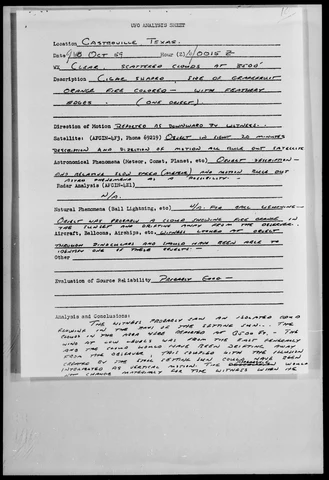 UFO ANALYSIS SHEET
Location CASTROVILLE, TEXAS.
Date OCT 59 Hour 0015 Z
WX CLEAR, SCATTERED CLOUDS AT 8500'
Description CIGAR SHAPED, SIZE OF GRAPEFRUIT
ORANGE FIRE COLORED - WITH FEATHERY
EDGES. (ONE OBJECT)
Direction of Motion REPORTED AS DOWNWARD TO WITNESS.
Satellite: (AFCIN-LF), Phone 69219) OBJECT IN SIGHT 20 MINUTES
DESCRIPTION AND DIRECTION OF MOTION ALL RULE OUT SATELLITE
Astronomical Phenomena (Meteor, Comet, Planet, etc) OBJECT DESCRIPTION-
AND RELATIVE SLOW SPEED (METEOR) AND MOTION RULE OUT
ASTRO PHENOMENA AS A POSSIBILITY.
Radar Analysis (AFCIN-LE1)
N/A.
Natural Phenomena (Ball Lightning, etc) N/A. FOR BALL LIGHTNING-
OBJECT WAS PROBABLY A CLOUD SHOWING FIRE ORANGE IN
THE SUNSET AND DRIFTING AWAY FROM THE OBSERVER.
Aircraft, Balloons, Airships, etc. WITNESS LOOKED AT OBJECT
THROUGH BINOCULARS AND SHOULD HAVE BEEN ABLE TO
IDENTIFY ONE OF THESE OBJECTS.-
Other
Evaluation of Source Reliability PROBABLY GOOD -
Analysis and Conclusions:
THE WITNESS PROBABLY SAW AN ISOLATED CLOUD
IN THE RAYS OF THE SETTING SUN. THE
CLOUDS IN THE AREA WERE REPORTED AT 8500 FT. - THE
WIND AT LOW LEVELS WAS FROM THE EAST GENERALLY
AND THE CLOUD WOULD HAVE BEEN DRIFTING AWAY
FROM THE OBSERVER, THIS COUPLED WITH THE ILLUSION
CREATED BY THE SETTING SUN COULD HAVE BEEN
INTERPRETED AS VERTICAL MOTION. THE WOULD
NOT CHANGE MATERIALLY FOR THE WITNESS WHEN HE